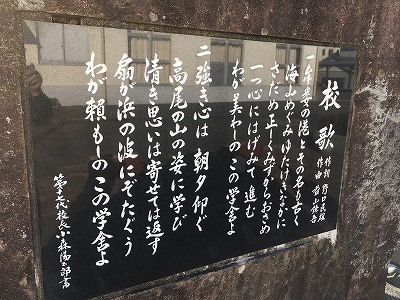 校歌
作詞 野口
作曲
一 牟婁の港とその名も古く
海山めぐみゆたけきなかに
さだめ正しくみずからおさめ
一つ心にはげみて進む
わが美わしのこの学舎よ
二 強き心は 朝夕仰ぐ
高尾の山の姿に学び
清き思いは寄せては返す
扇が浜の波にぞたぐう
わが頼もしのこの学舎よ
代校長 小森陽 書